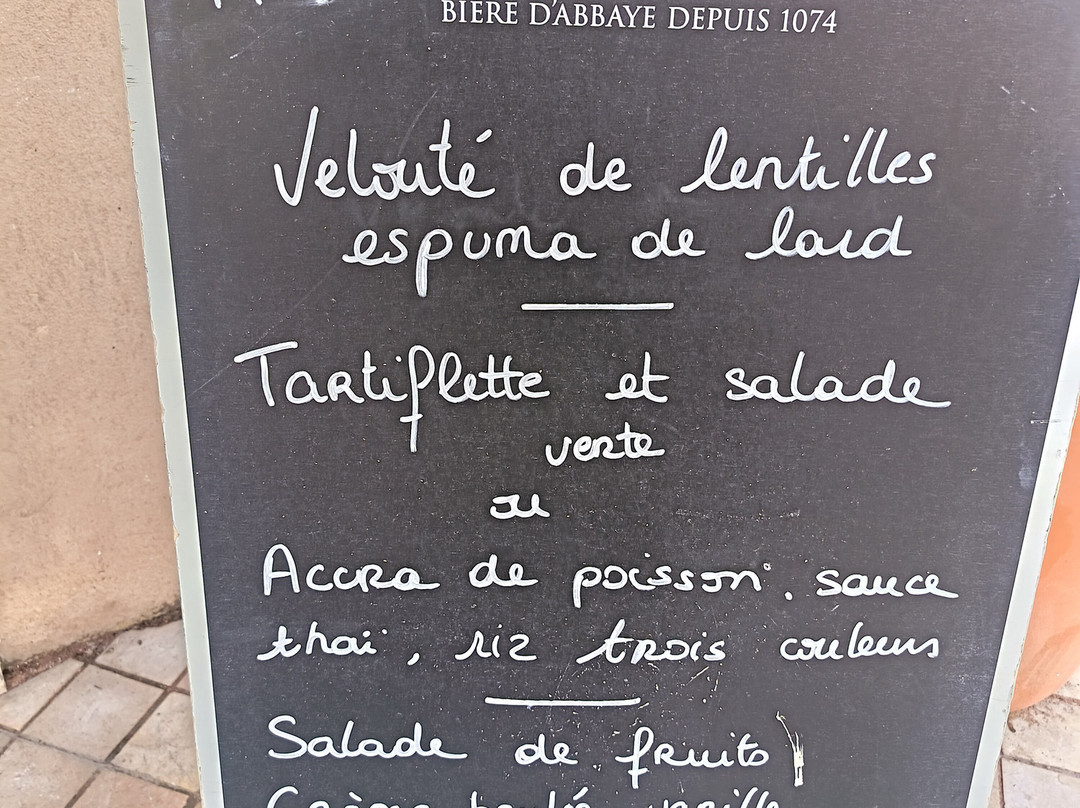 BIÈRE D'ABBAYE DEPUIS 1074
Velouté de lentilles
espuma de lard
Tartiflette et salade
verte
ou
Accra de poisson, sauce
thaï, riz trois couleurs
Salade de fruits